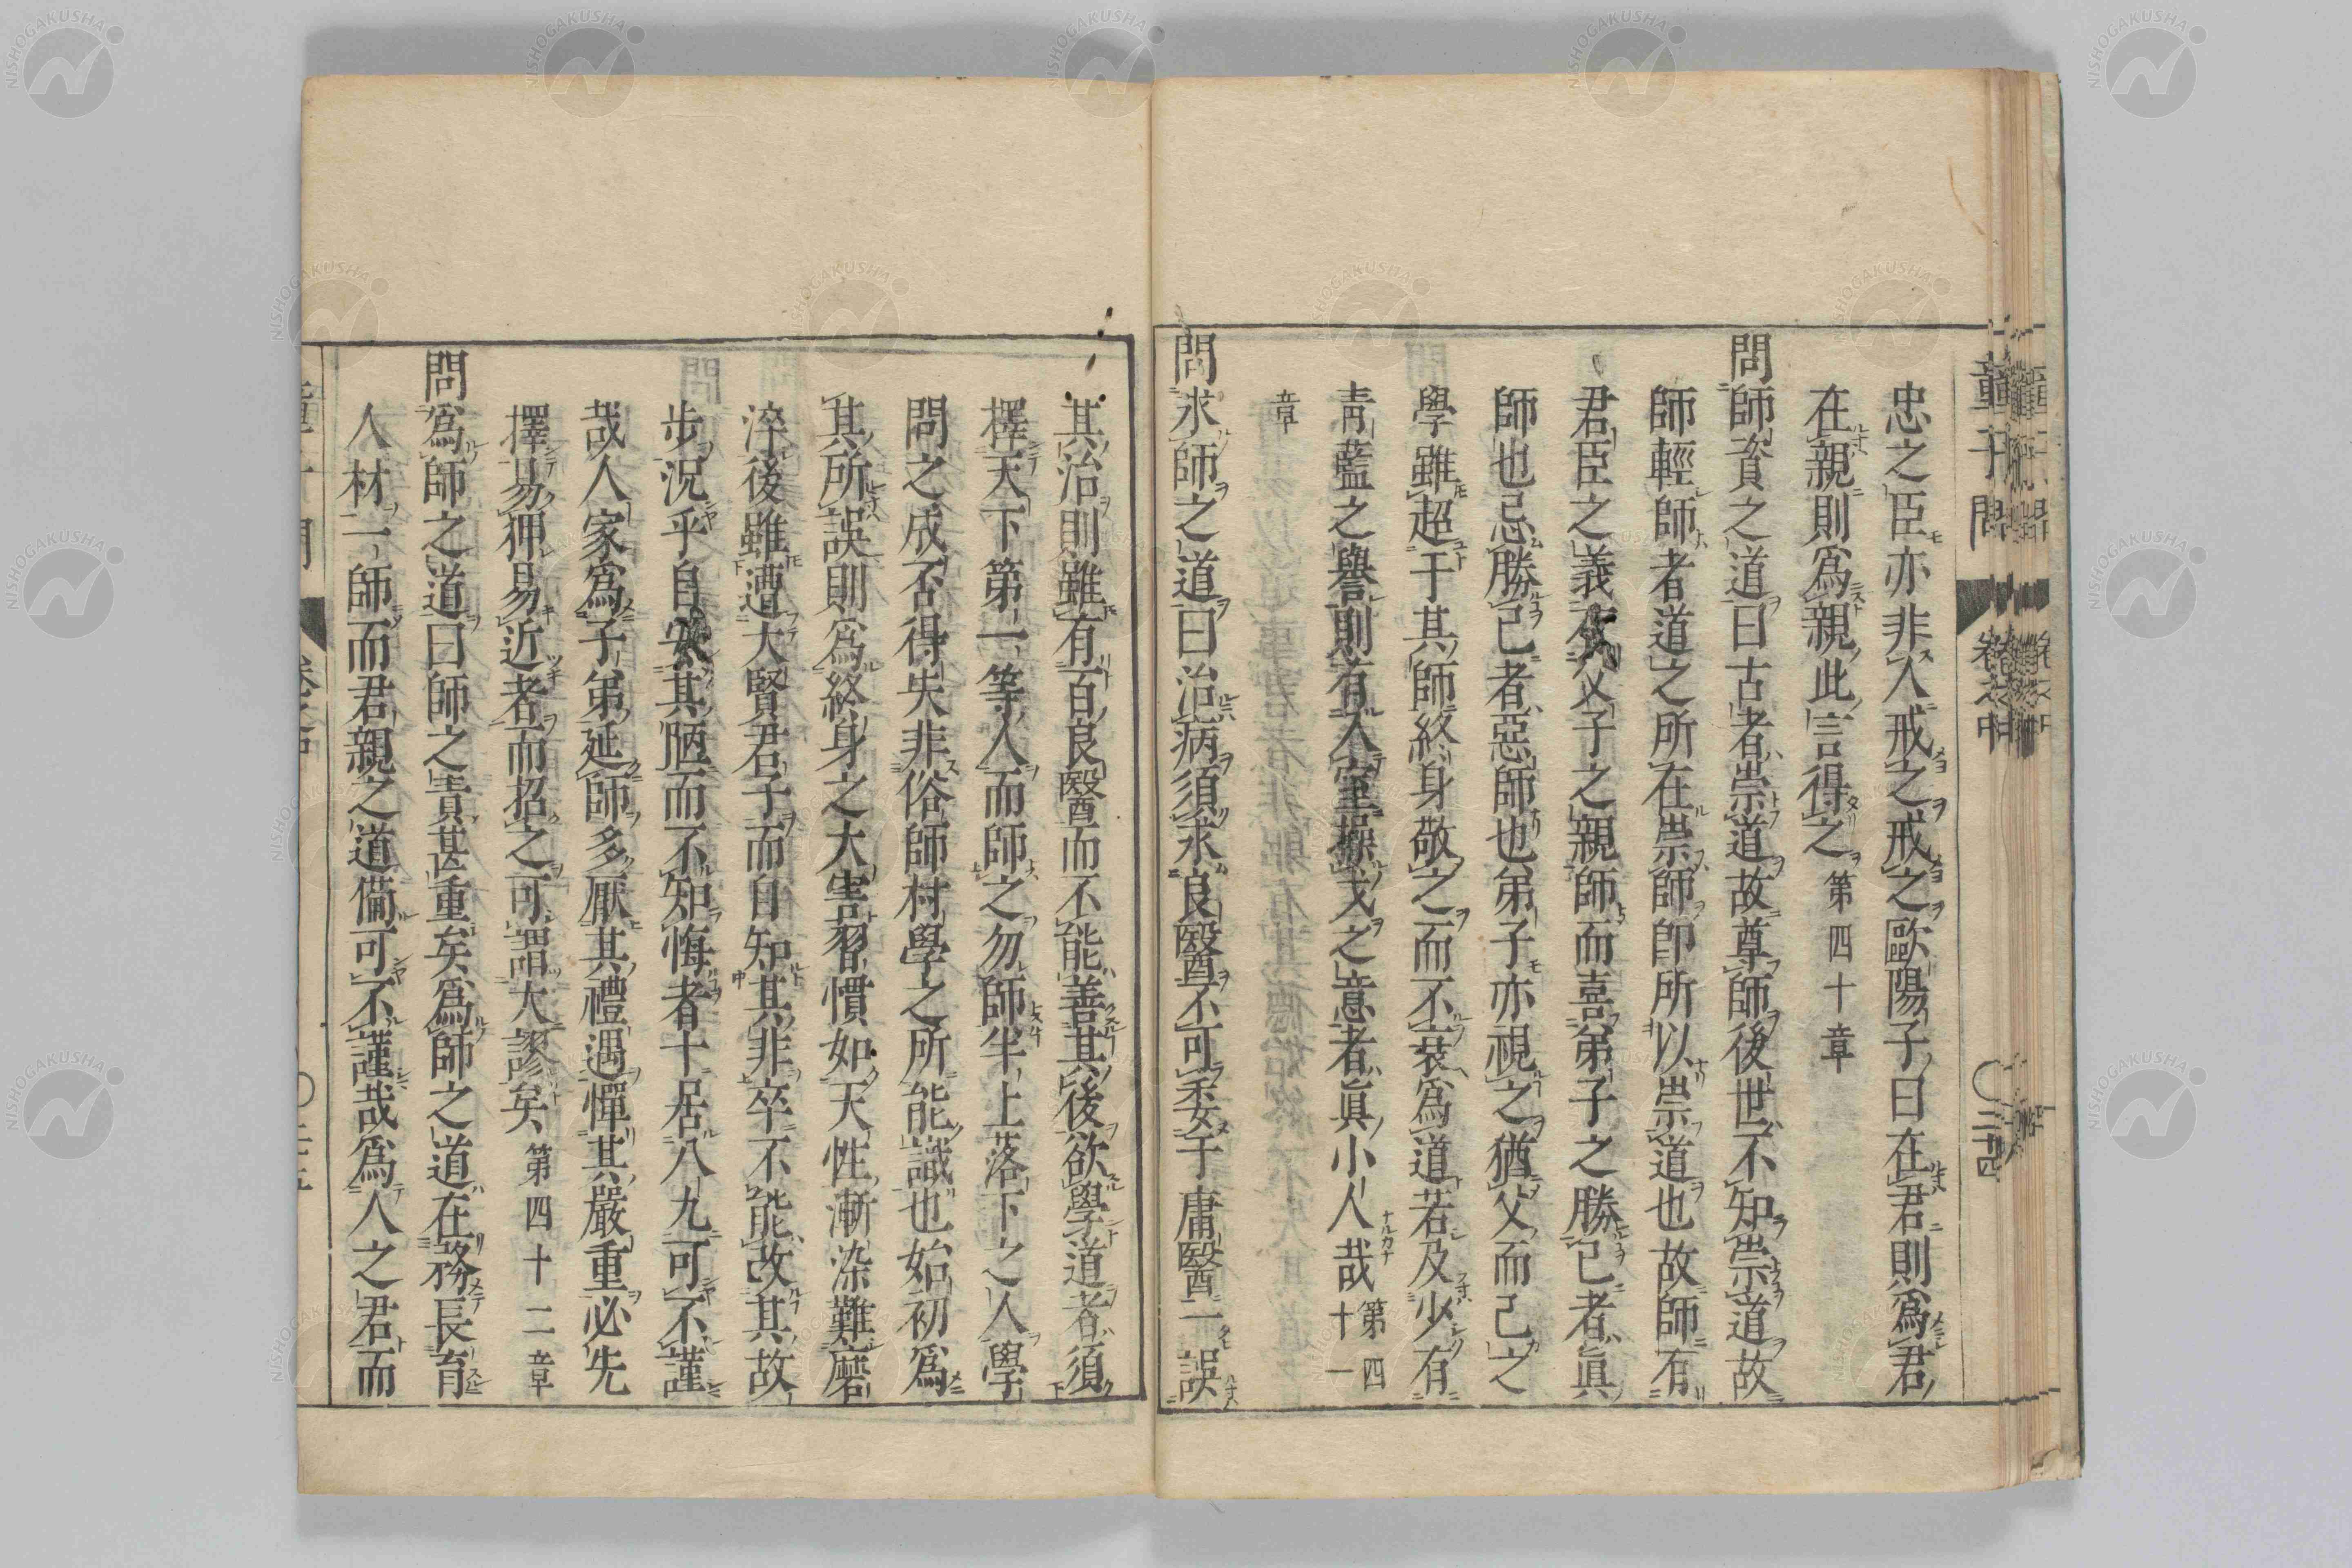 童子問 卷之中 〇三十四
忠之臣亦非人戒之戒之歐陽子曰在君則爲君
在親則爲親此言得之 第四十章
問師資之道曰古者崇道故尊師後世不知崇道故
師輕師者道之所在崇師卽所以崇道也故師有
君臣之義父子之親師而喜弟子之勝己者眞
師也忌勝己者惡師也弟子亦視之猶父而己之
學雖超于其師終身敬之而不衰爲道若及少有
靑藍之譽則有入室操戈之意者眞小人哉 第四十一
章
問求師之道曰治病須求良醫不可委于庸醫一誤
其治則雖有百良醫而不能善其後欲學道者須
擇天下第一等人而師之勿師半上落下之人學
問之成否得失非俗師村學之所能識也始初爲
其所誤則爲終身之大害習慣如天性漸染難磨
淬後雖遭大賢君子而自知其非卒不能改其故
步況乎自安其陋而不知悔者十居八九可不謹
哉人家爲子弟延師多厭其禮遇憚其嚴重必先
擇易狎易近者而招之可謂大謬矣 第四十二章
問爲師之道曰師之責甚重矣爲師之道在務長育
人材一師而君親之道備可不謹哉爲人之君而